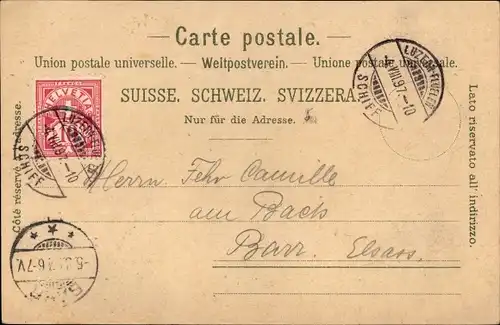 Carte postale.
Union postale universelle. — Weltpostverein. — Unione postale universale.
SUISSE. SCHWEIZ. SVIZZERA.
Nur für die Adresse.
Côté réservé à l'adresse.
Lato riservato all' indirizzo.
HELVETIA
LUZERN-FLÜELEN
4.VIII.97.-10
SCHIFF
LUZERN-FLÜELEN
4.VIII.97.-10
SCHIFF
Herrn Fehr Camille
am Bach
Barr. Elsass.
6-7V.